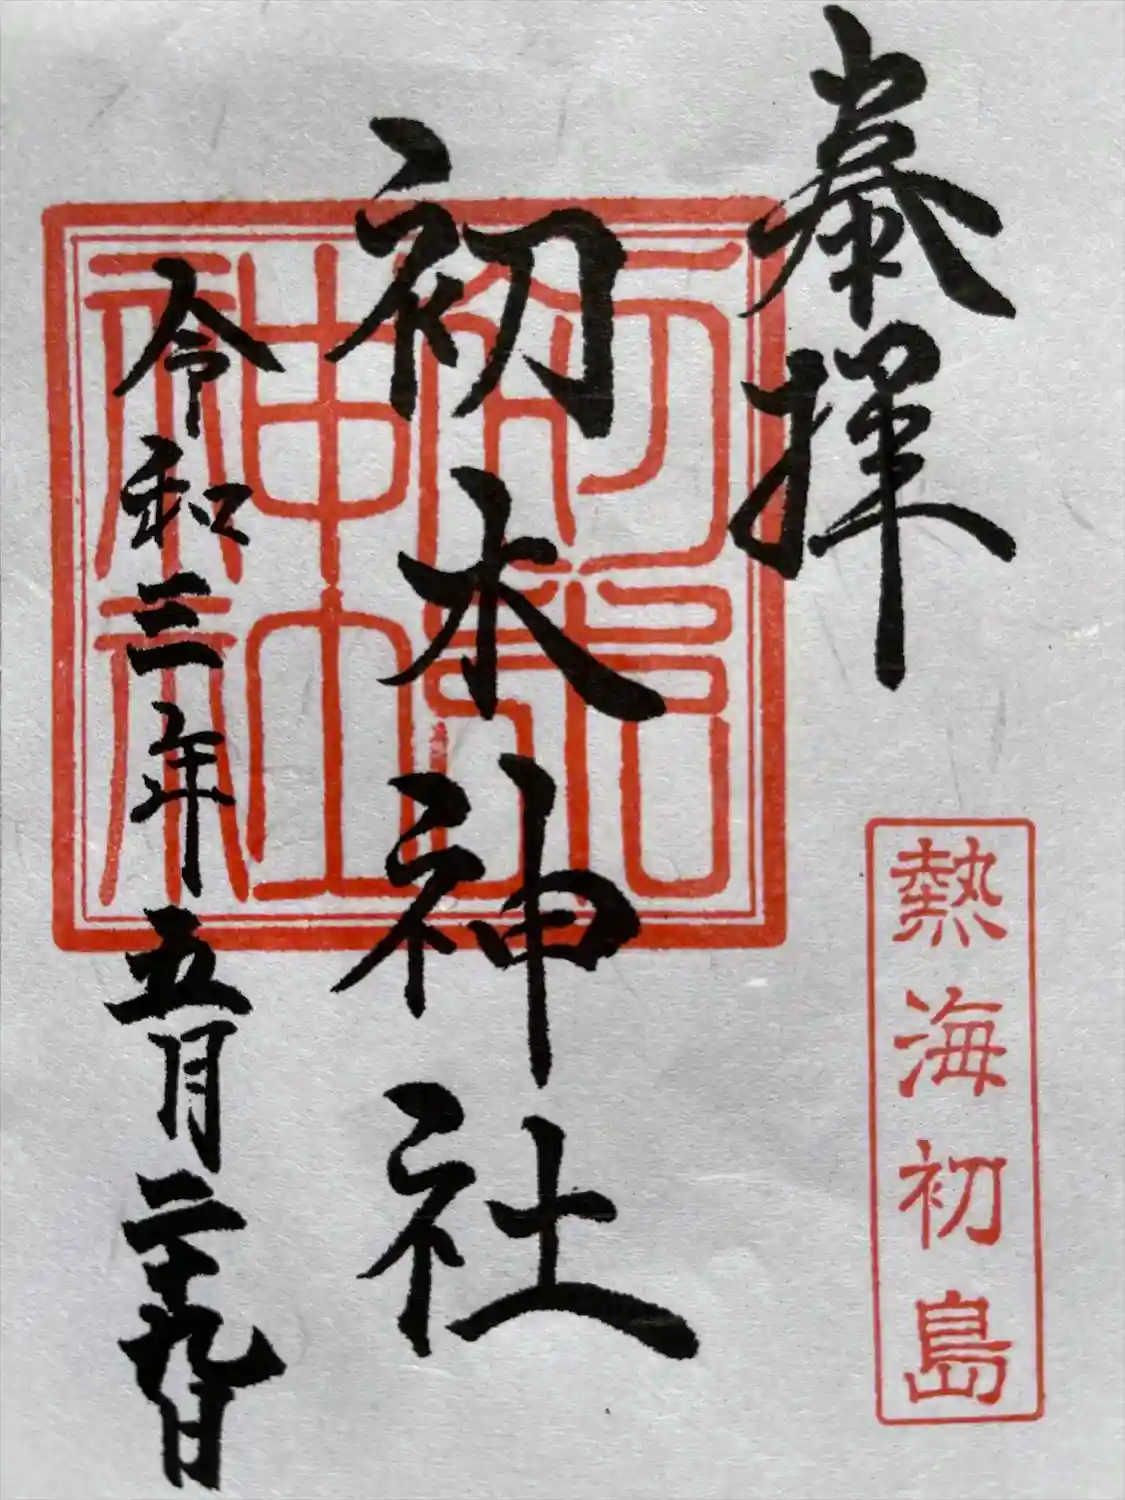 奉拝
熱海初島
初木神社
令和三年五月二十九日
神社